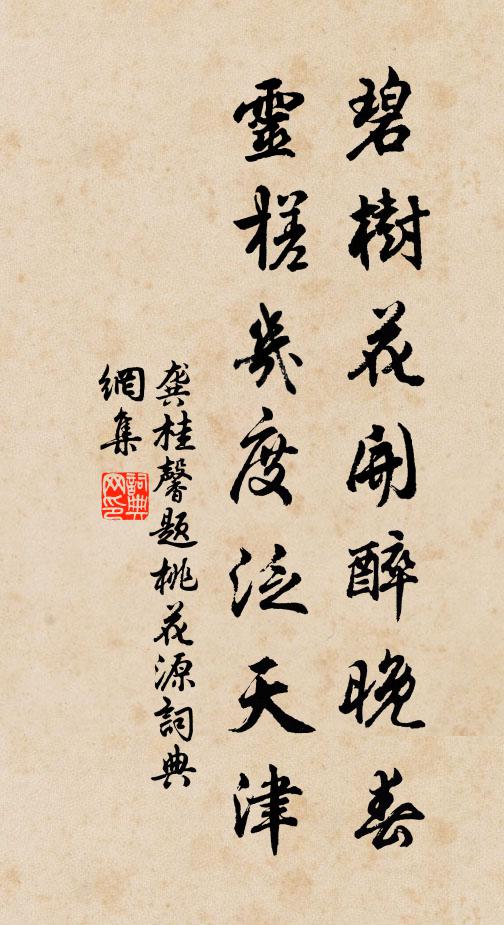 碧樹花開醉晚春
靈槎幾度泛天津
龔桂馨題桃花源詞典
網集
詞典
网印